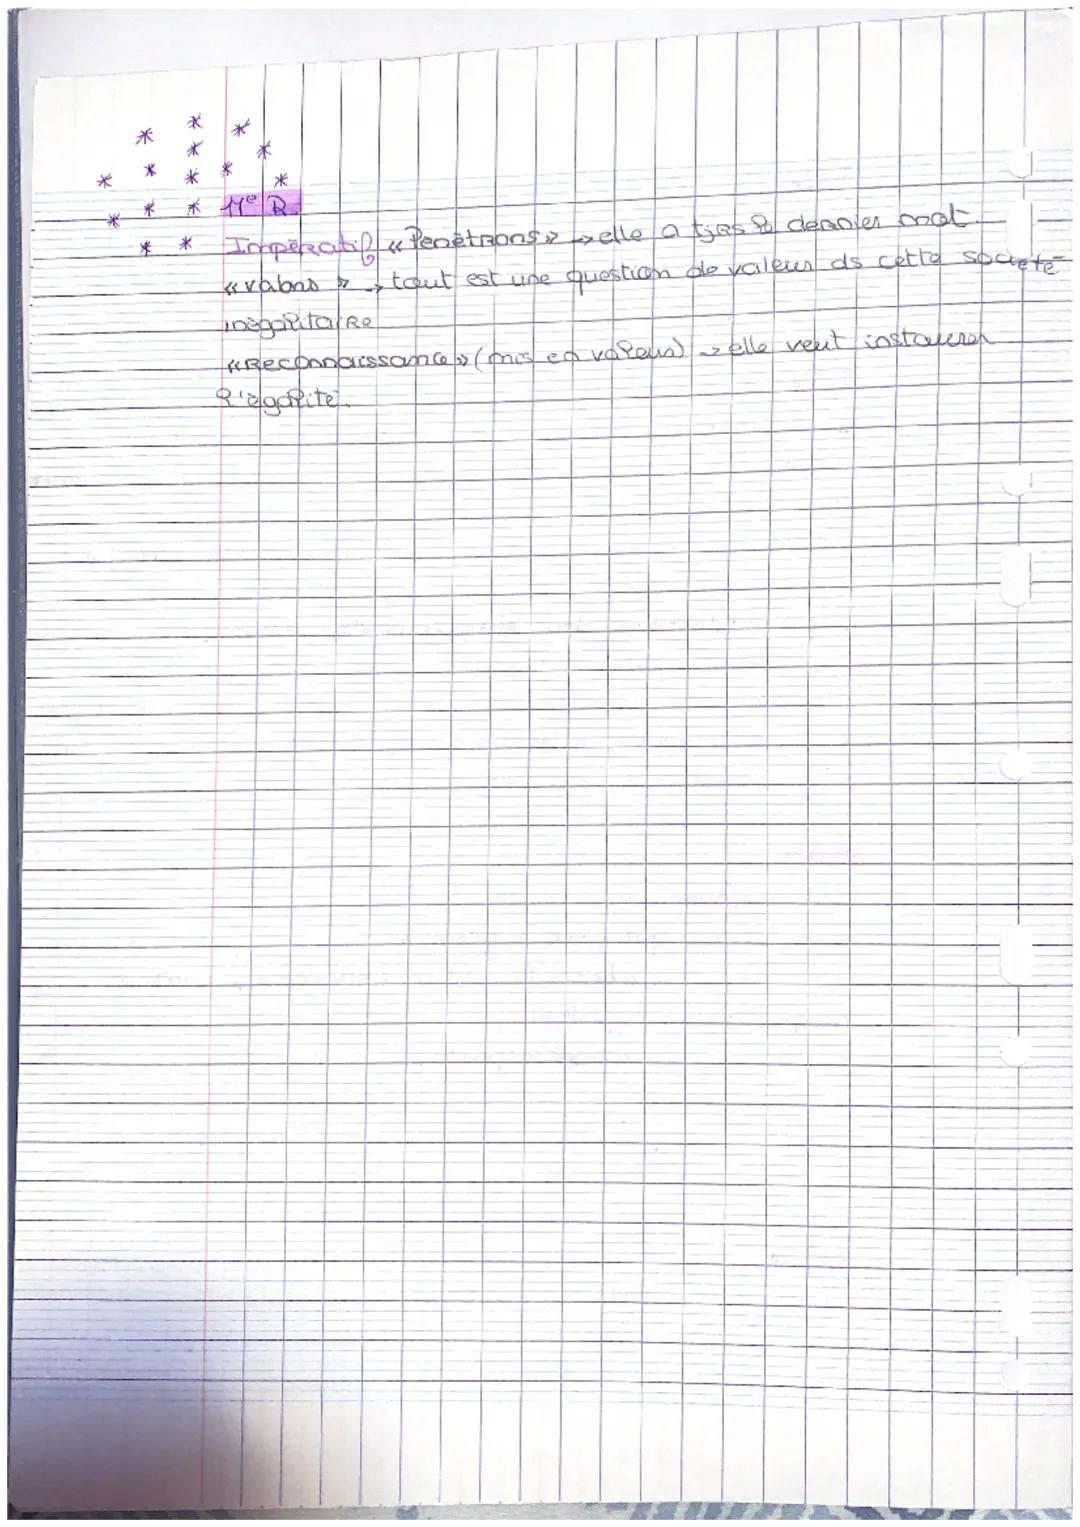 11e R.
Impératif « Pénétrons » → elle a tjrs le dernier mot
« valons » → tout est une question de valeur ds cette société
inégalitaire
« Reconnaissance » (mis en valeur) → elle veut instaurer
l'égalité.